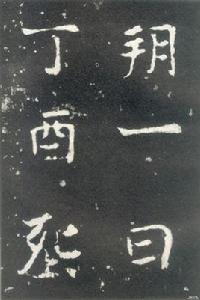 朔一日
丁酉